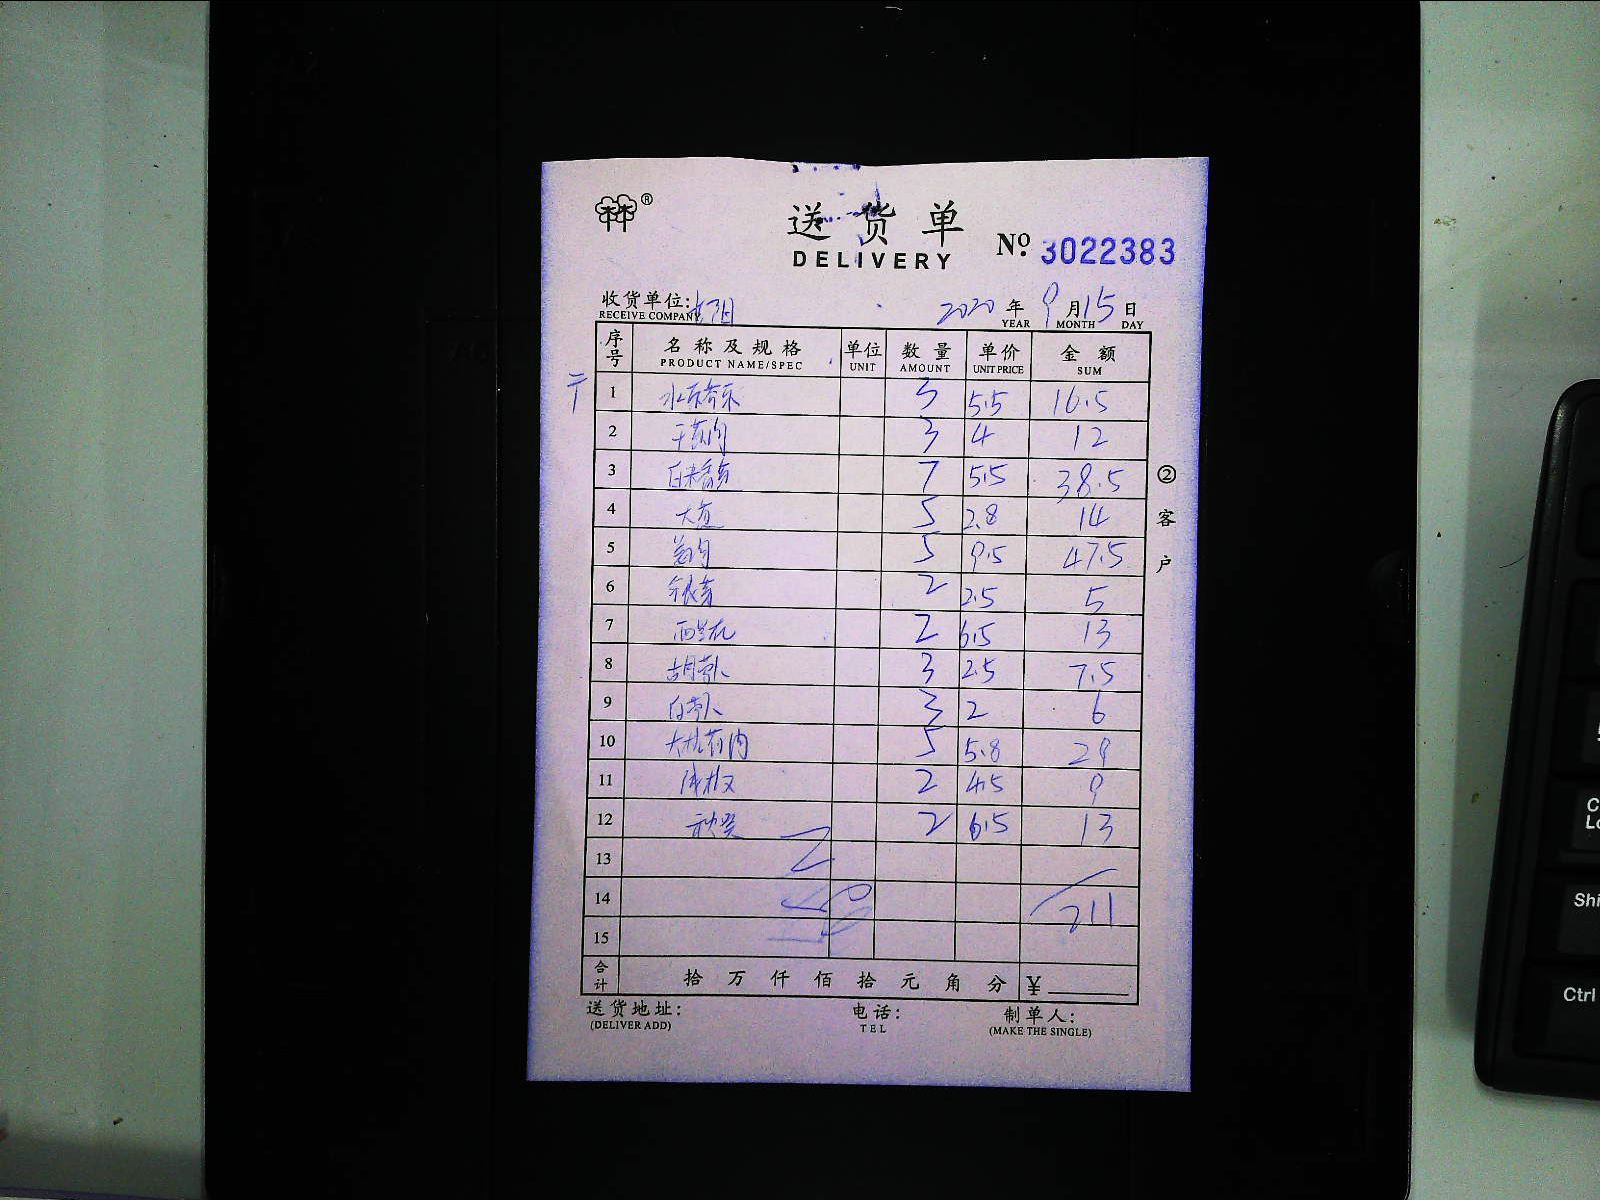 林®
送货单
DELIVERY
№ 3022383
收货单位:
RECEIVE COMPANY
2020 年 9 月 15 日
YEAR MONTH DAY
序号 名称及规格 单位 数量 单价 金额
PRODUCT NAME/SPEC UNIT AMOUNT UNIT PRICE SUM
1 3 5.5 16.5
2 3 4 12
3 7 5.5 38.5
4 5 2.8 14
5 5 9.5 47.5
6 2 2.5 5
7 西兰花 2 6.5 13
8 胡萝卜 3 2.5 7.5
9 白萝卜 3 2 6
10 5 5.8 29
11 2 4.5 9
12 秋葵 2 6.5 13
13
14 211
15
合计 拾 万 仟 佰 拾 元 角 分 ¥
送货地址: 电话: 制单人:
(DELIVER ADD) TEL (MAKE THE SINGLE)
②客户
Shi
Ctrl